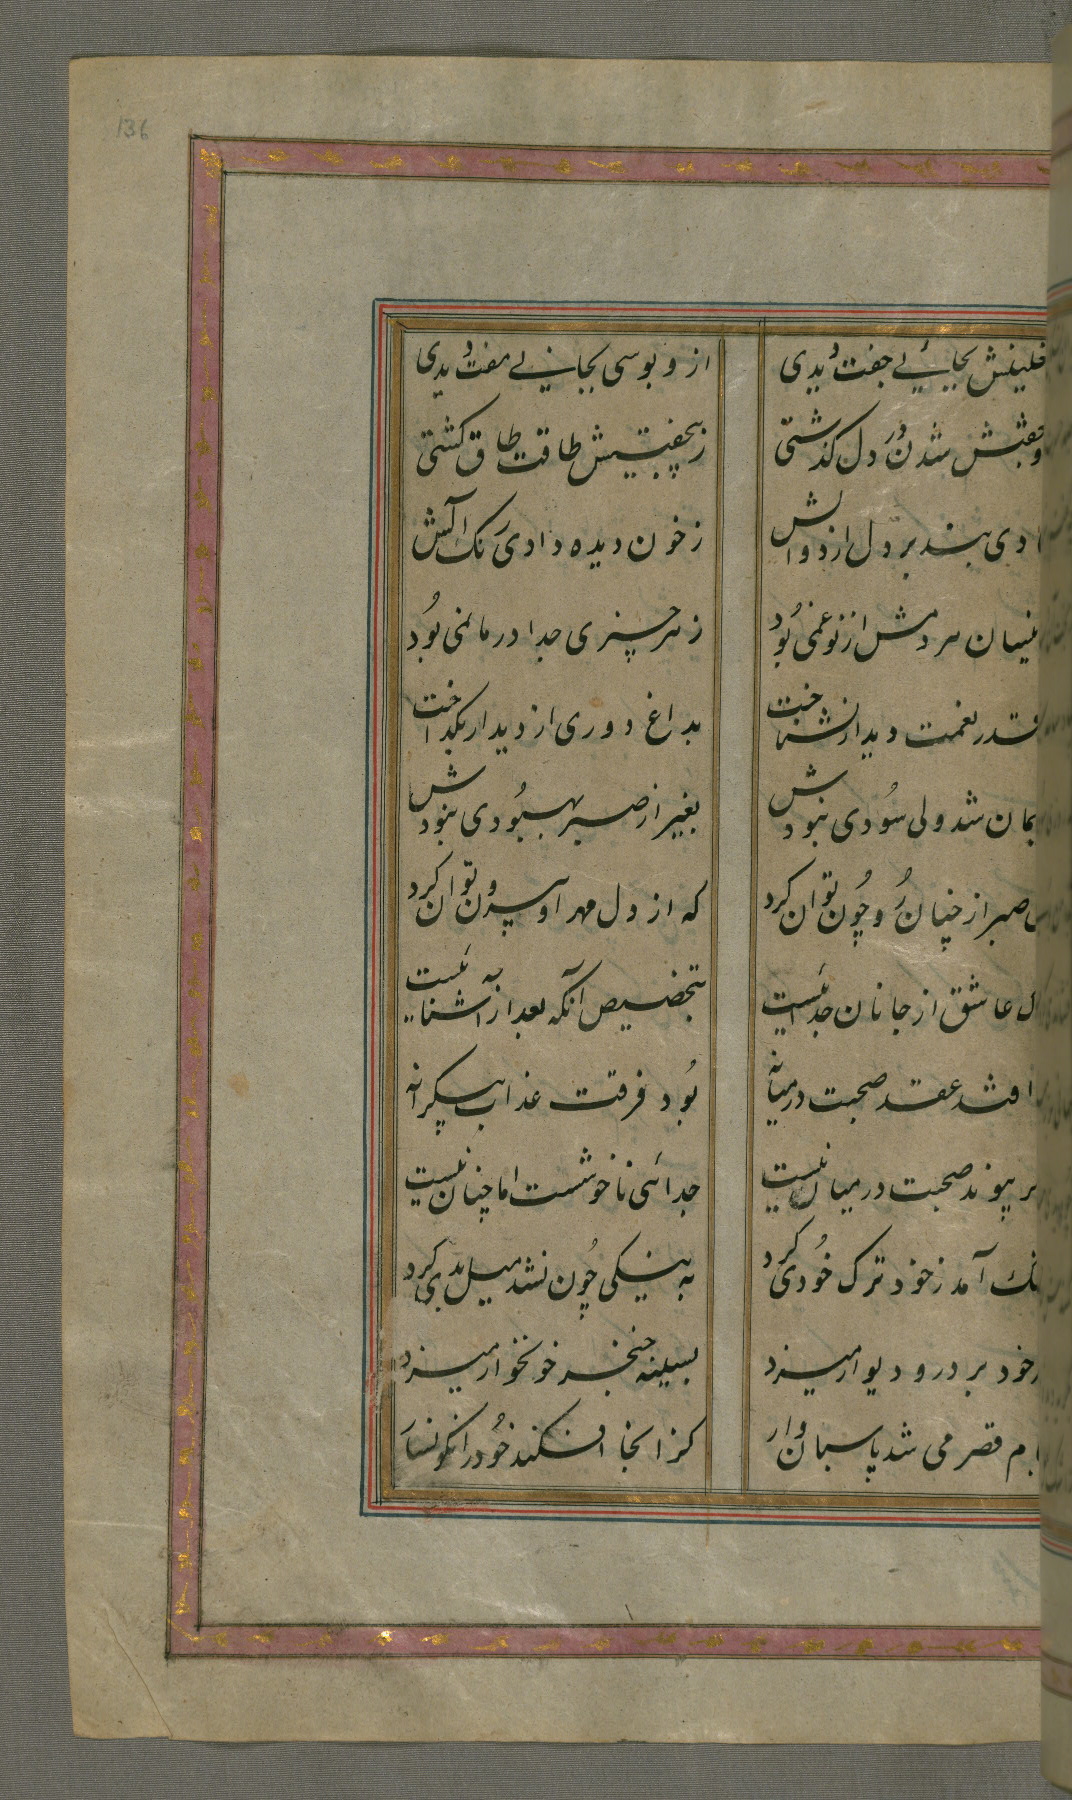 136
بجائی جفت دیدی ازو بوسی بجانی مفت دیدی
جفتش شدن در دل کذشتی ز بیجفتیش طاقت طاق کشتی
دی بند بر دل از دوالش ز خون دیده دادی رنک آلش
هر دمش از نو غمی بود ز هر چیزی جدا در ماتمی بود
قدر نعمت دیدار نشناخت بداغ دوری از دیدار بکداخت
شد ولی سودی نبودش بغیر از صبر بهبودی نبودش
صبر از چنان رو چون توان کرد که از دل مهر او بیرون توان کرد
عاشق از جانان جدائیست بتخصیص آنکه بعد از آشنائیست
افتد عقد صحبت در میانه بود فرقت عذاب بیکرانه
پیوند صحبت در میان نیست جدائی ناخوشست اما چنان نیست
آمد ز خود ترک خودی کرد به نیکی چون نشد میل بدی کرد
خود بر در و دیوار میزد بسینه خنجر خونخوار میزد
قصر می شد پاسبان وار کز انجا افکند خود را نکونسار